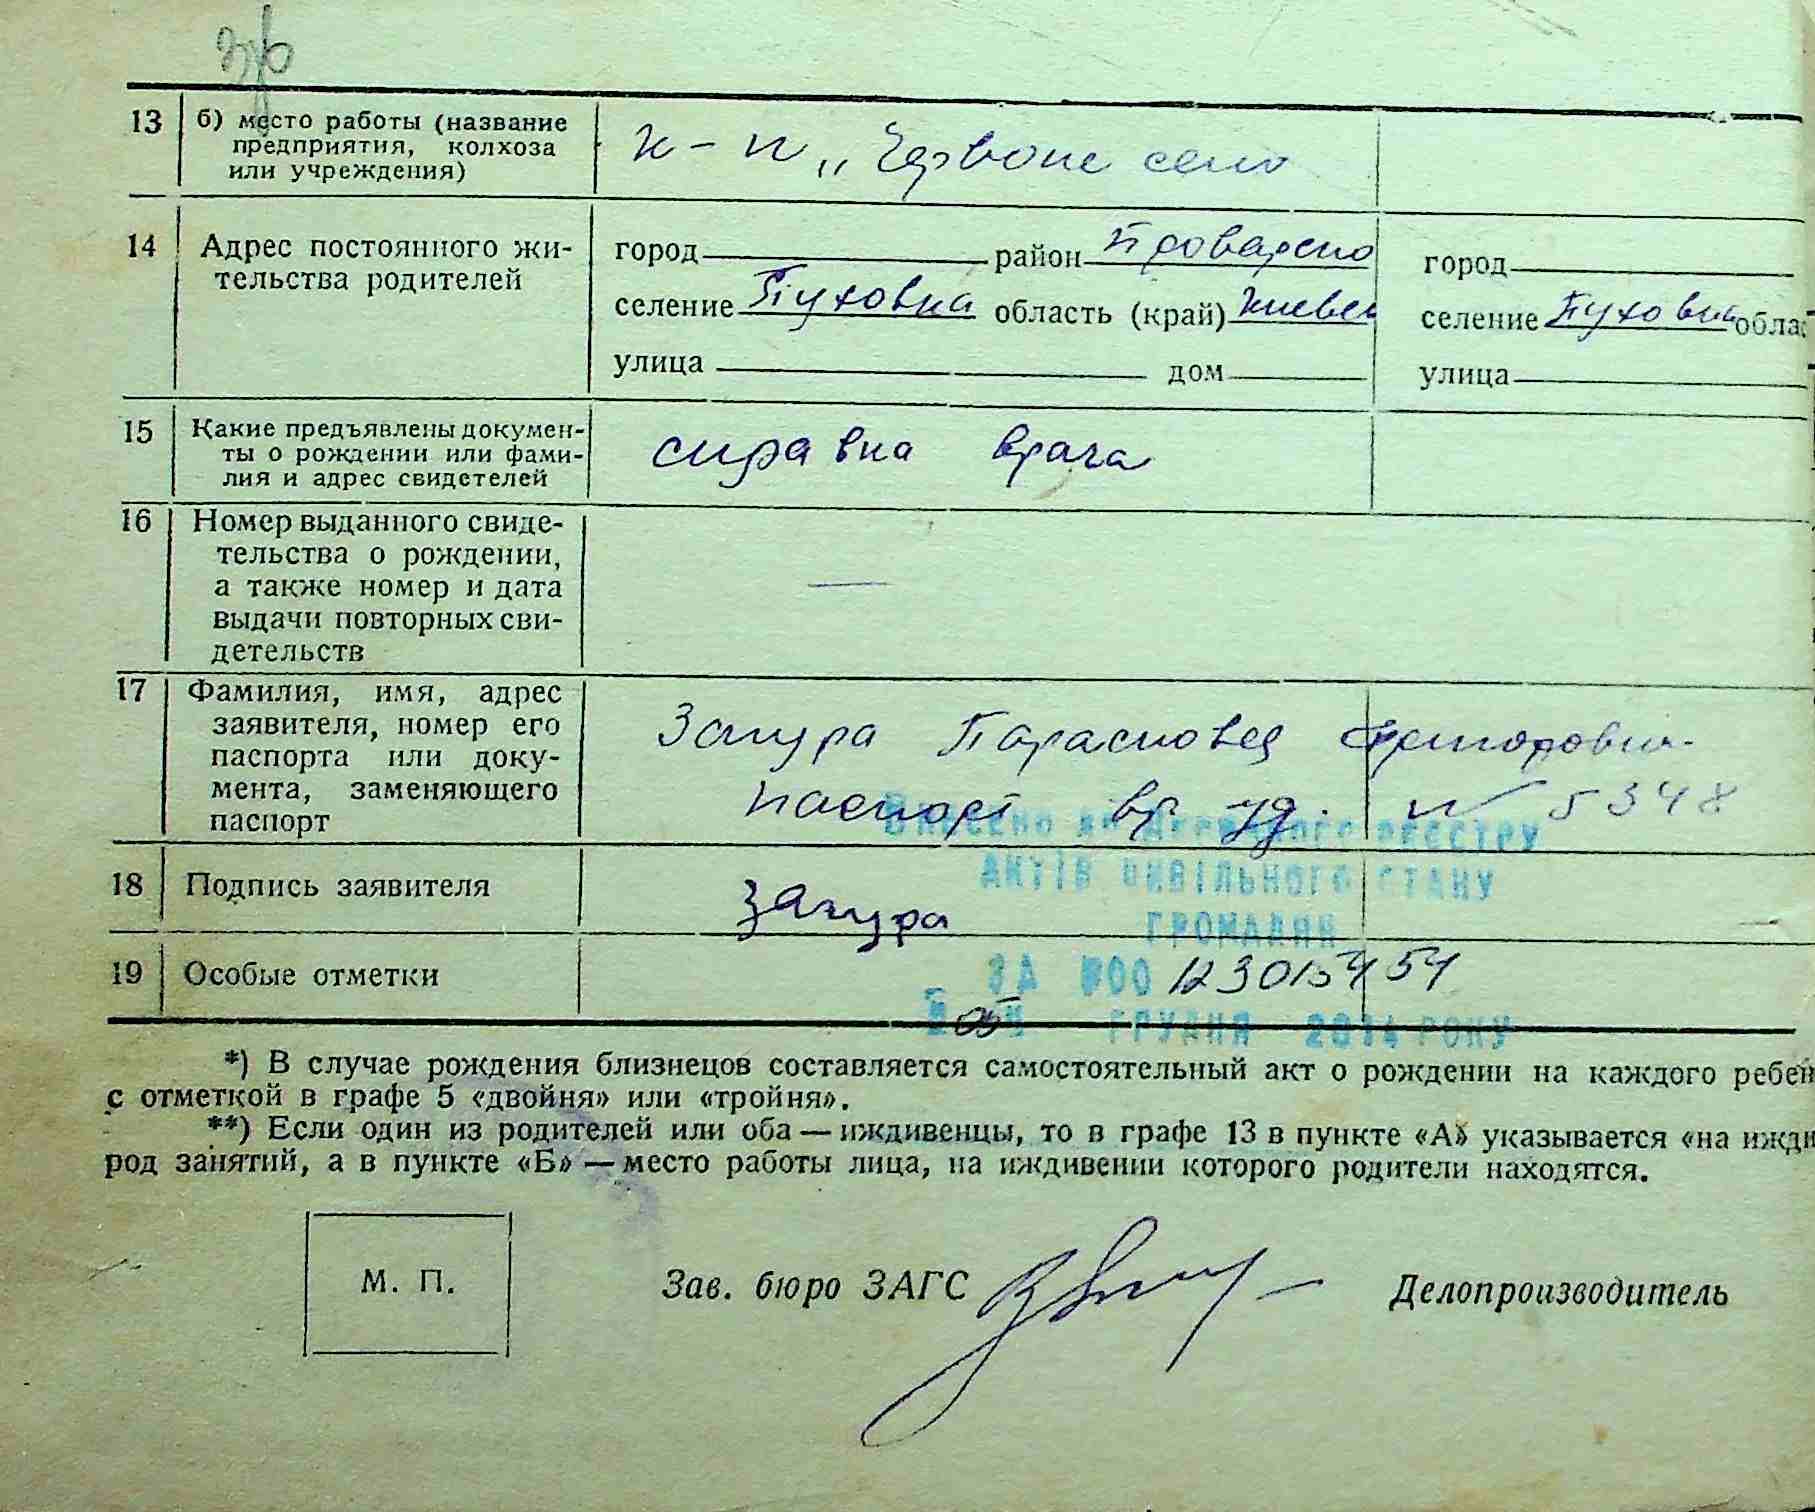 13 б) место работы (название
предприятия, колхоза
или учреждения)
к-п „Червоне село
14 Адрес постоянного жи-
тельства родителей
город район Броварско
селение Пуховка область (край) Киевск
улица дом
город
селение Пуховка облас
улица
15 Какие предъявлены докумен-
ты о рождении или фами-
лия и адрес свидетелей
справка врача
16 Номер выданного свиде-
тельства о рождении,
а также номер и дата
выдачи повторных сви-
детельств
—
17 Фамилия, имя, адрес
заявителя, номер его
паспорта или доку-
мента, заменяющего
паспорт
Зацура Парасковея
паспорт вр уд. № 5348
ВНЕСЕНО ДО ДЕРЖАВНОГО РЕЄСТРУ
АКТІВ ЦИВІЛЬНОГО СТАНУ
ГРОМАДЯН
18 Подпись заявителя
Зацура
19 Особые отметки
ЗА №00 123015454
05 ГРУДНЯ 2014 РОКУ
*) В случае рождения близнецов составляется самостоятельный акт о рождении на каждого ребен
с отметкой в графе 5 «двойня» или «тройня».
**) Если один из родителей или оба — иждивенцы, то в графе 13 в пункте «А» указывается «на ижди
род занятий, а в пункте «Б» — место работы лица, на иждивении которого родители находятся.
М. П.
Зав. бюро ЗАГС
Делопроизводитель